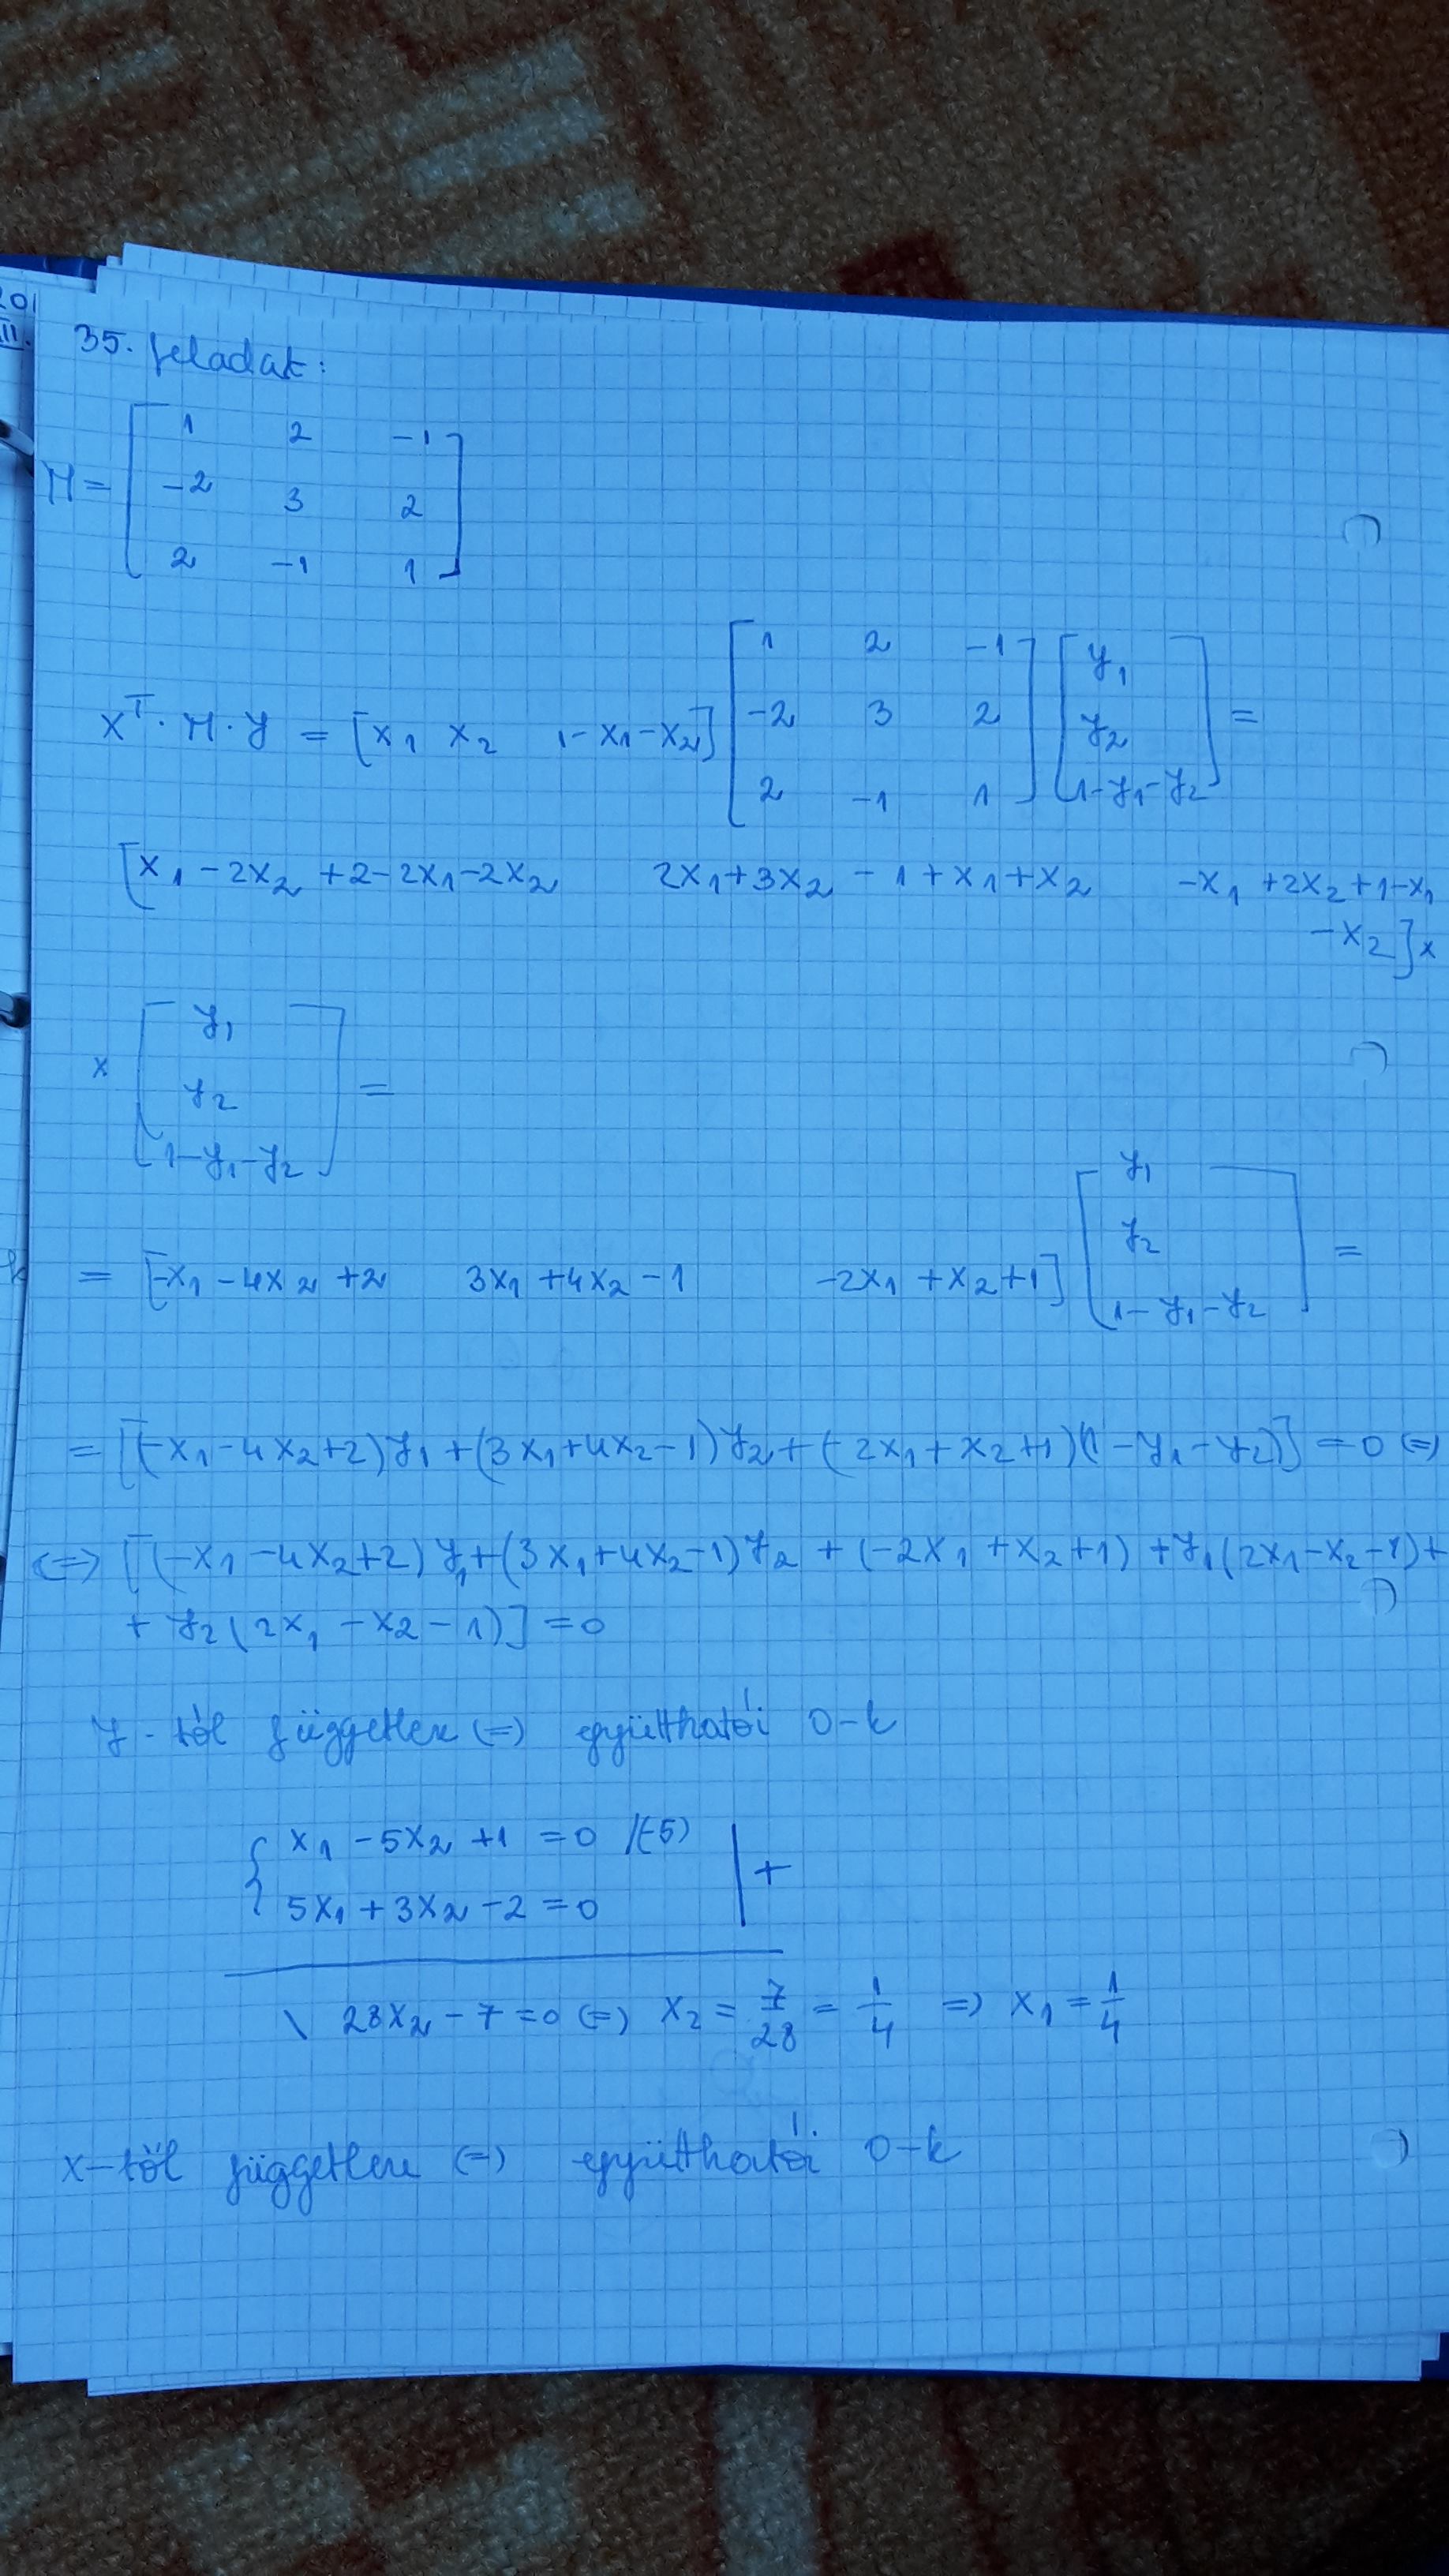 201
III.
35. feladat:
M = [ 1 2 -1
-2 3 2
2 -1 1 ]
x^T · M · y = [x₁ x₂ 1-x₁-x₂] [ 1 2 -1
-2 3 2
2 -1 1 ] [ y₁
y₂
1-y₁-y₂ ] =
[x₁ - 2x₂ + 2 - 2x₁ - 2x₂ 2x₁ + 3x₂ - 1 + x₁ + x₂ -x₁ + 2x₂ + 1 - x₁
- x₂] x
x [ y₁
y₂
1-y₁-y₂ ] =
= [-x₁ - 4x₂ + 2 3x₁ + 4x₂ - 1 -2x₁ + x₂ + 1] [ y₁
y₂
1-y₁-y₂ ] =
= [(-x₁ - 4x₂ + 2) y₁ + (3x₁ + 4x₂ - 1) y₂ + (-2x₁ + x₂ + 1)(1 - y₁ - y₂)] = 0 (=)
(=) [(-x₁ - 4x₂ + 2) y₁ + (3x₁ + 4x₂ - 1) y₂ + (-2x₁ + x₂ + 1) + y₁(2x₁ - x₂ - 1) +
+ y₂(2x₁ - x₂ - 1)] = 0
y-től független (=) együtthatói 0-k
{ x₁ - 5x₂ + 1 = 0 /(-5) | +
5x₁ + 3x₂ - 2 = 0
\ 28x₂ - 7 = 0 (=) x₂ = 7/28 = 1/4 => x₁ = 1/4
x-től független (=) együtthatói 0-k